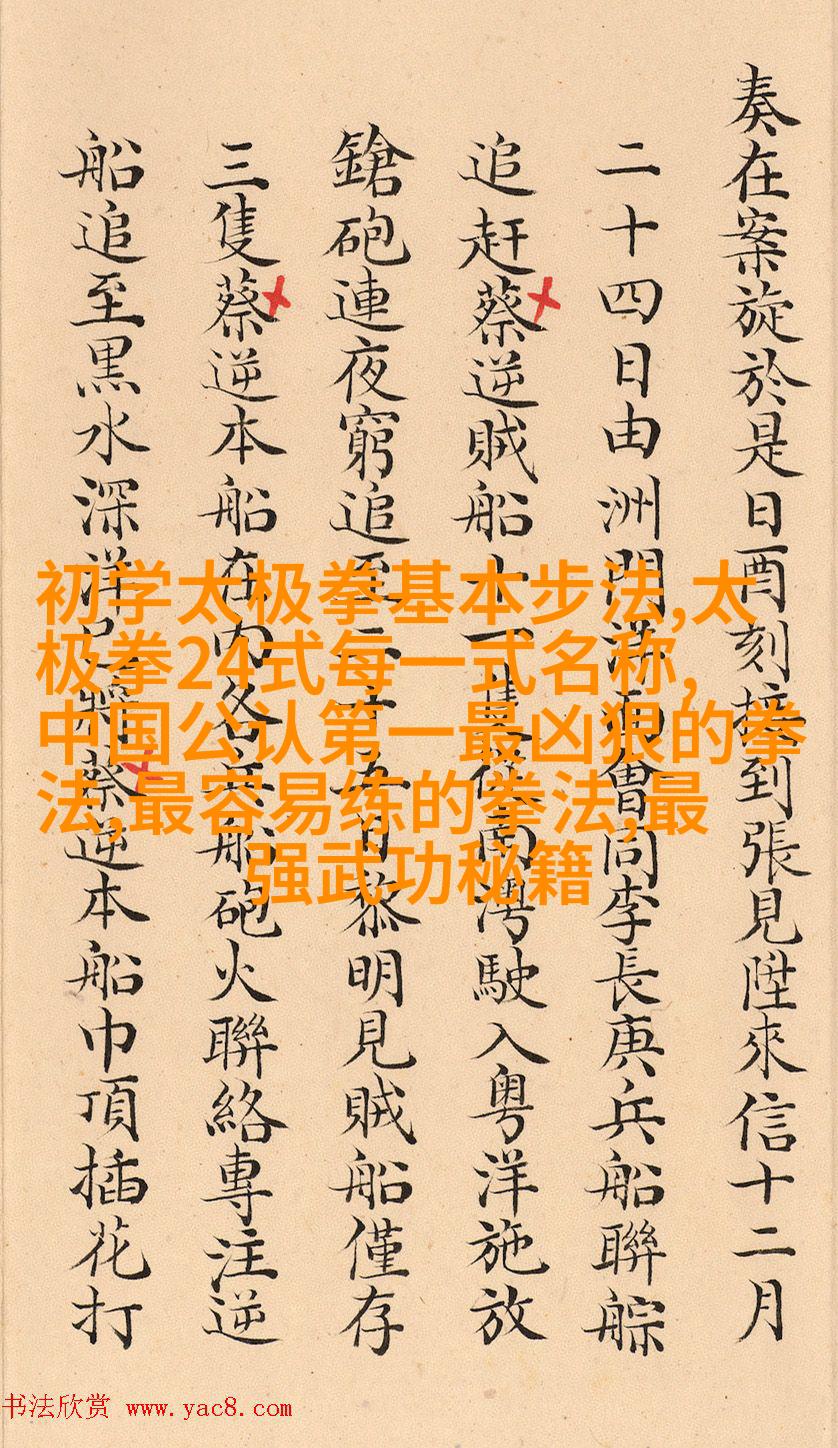 奏在案旋於是日酉刻接到張見陞來信十二月
二十四日由洲門會同李長庚兵船聯䑸
追赶蔡逆賊船十一隻從南灣駛入粤洋施放
鎗砲連夜窮追至二十五日黎明見賊船僅存
三隻蔡逆本船在内各兵船砲火聯絡專注逆
船追至黒水深洋已將蔡逆本船巾頂插花打
初学太极拳基本步法,太
极拳24式每一式名称,
中国公认第一最凶狠的拳
法,最容易练的拳法,最
强武功秘籍
书法欣赏 www.yac8.com